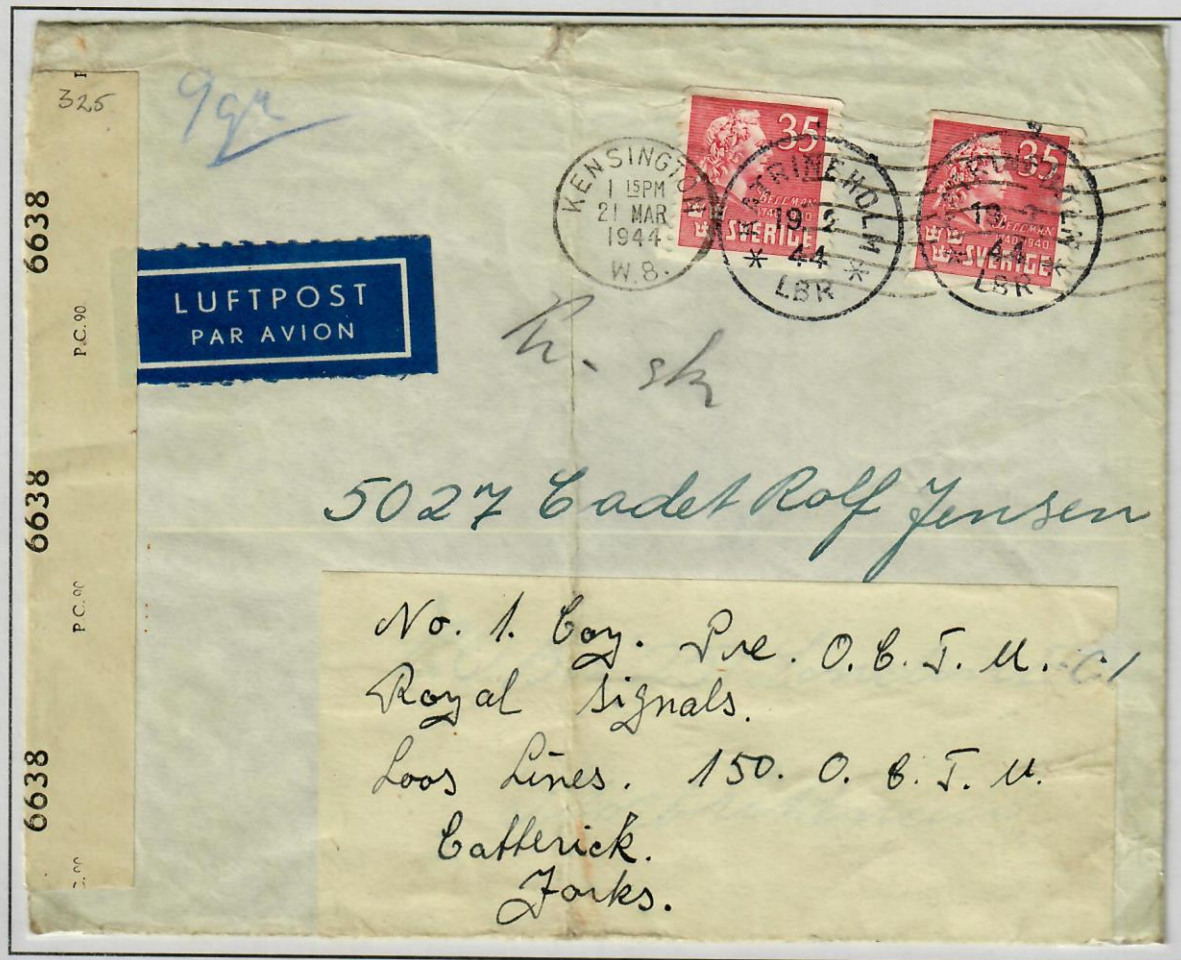 325
9gr
6638
P.C. 90
6638
P.C. 90
6638
KENSINGTON
1 15PM
21 MAR
1944
W.8.
35
BELLMAN
1740 1940
SVERIGE
KATRINEHOLM
19. 2
44
LBR
35
BELLMAN
1740 1940
SVERIGE
KATRINEHOLM
19. 2
44
LBR
LUFTPOST
PAR AVION
5027 Cadet Rolf Jensen
No. 1. Coy. Pre. O.C.T.U.
Royal Signals.
Loos Lines. 150. O.C.T.U.
Catterick.
Yorks.